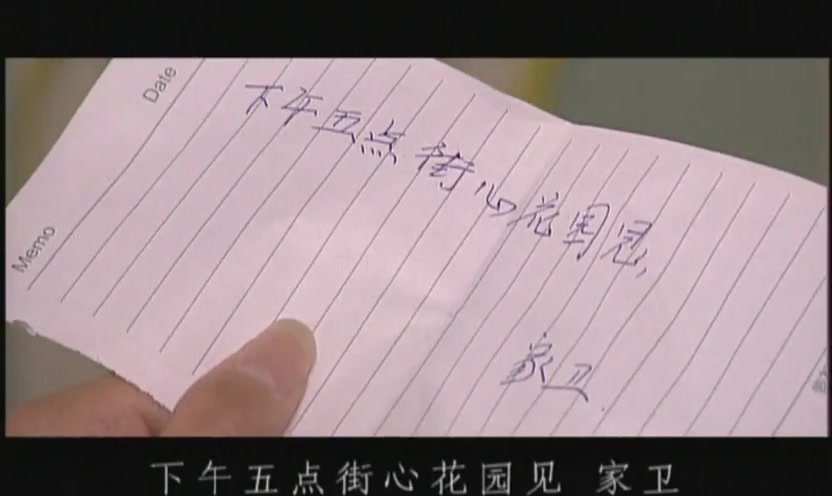 Date
Memo
下午五点街心花园见,
家卫.
下午五点街心花园见 家卫